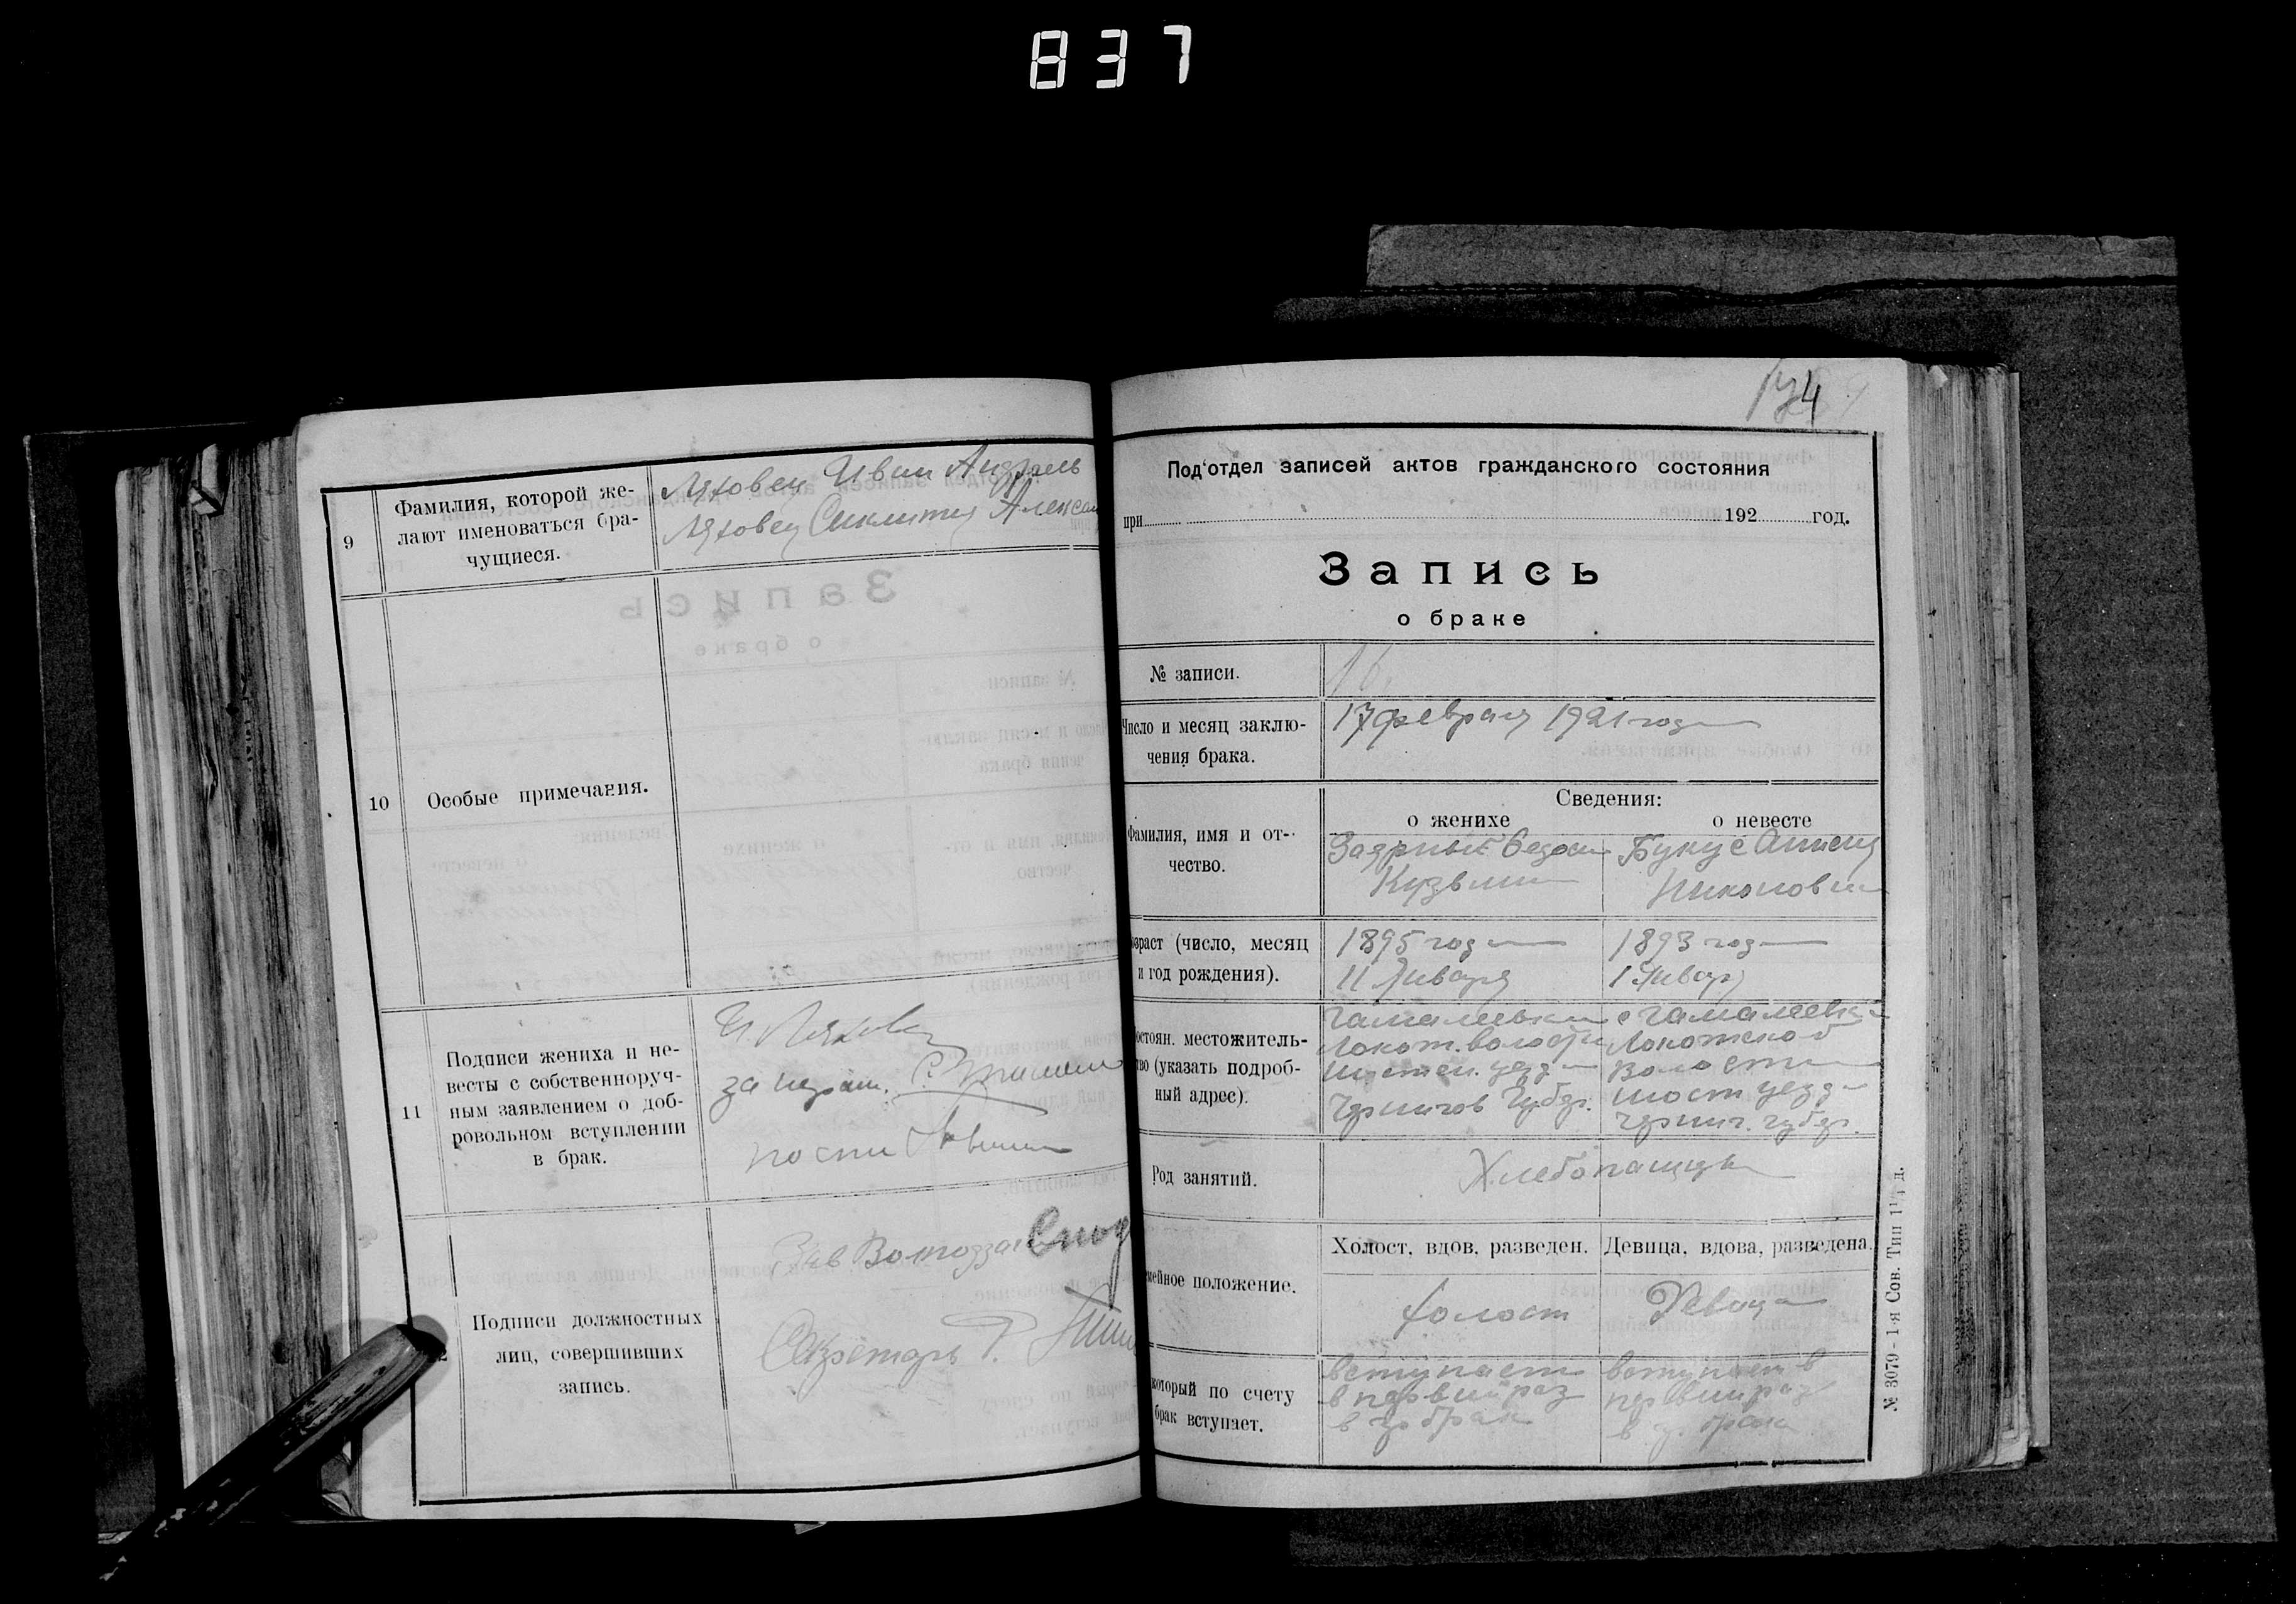 837
9
Фамилия, которой же-
лают именоваться бра-
чущиеся.
Ляховец Иван Андрель
Ляховец Сиклития Алексан
10
Особые примечания.
11
Подписи жениха и не-
весты с собственноруч-
ным заявлением о доб-
ровольном вступлении
в брак.
И. Ляховец
за неграм.
Подписи должностных
лиц, совершивших
запись.
Зав
Секретарь Г.
174
Под'отдел записей актов гражданского состояния
при 192 год.
Запись
о браке
№ записи.
16.
Число и месяц заклю-
чения брака.
17 февраля 1921 года
Сведения:
о женихе
о невесте
Фамилия, имя и от-
чество.
Задрный
Кузьмин
Букус
Никонова
озраст (число, месяц
и год рождения).
1895 года
11 Января
1893 года
1 Январ
остоян. местожитель-
тво (указать подроб-
ный адрес).
Гамалеевки
Локот. волости
уезда
Чернигов Губер.
с Гамалеевка
Локотской
Волости
Шост уезда
Черниг. губер.
Род занятий.
Хлебопашцы
мейное положение.
Холост, вдов, разведен.
Девица, вдова, разведена.
холост
Девица
который по счету
брак вступает.
вступает
в первый раз
в гр брак
вступает в
первый раз
в г. брак
№ 3079 - 1-я Сов. Тип 1¹/₄ д.